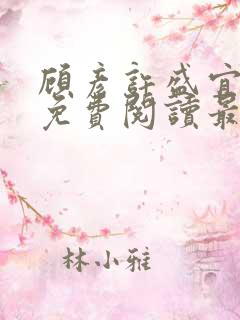 顾彦許盛宜
免費閱讀最
林小雅